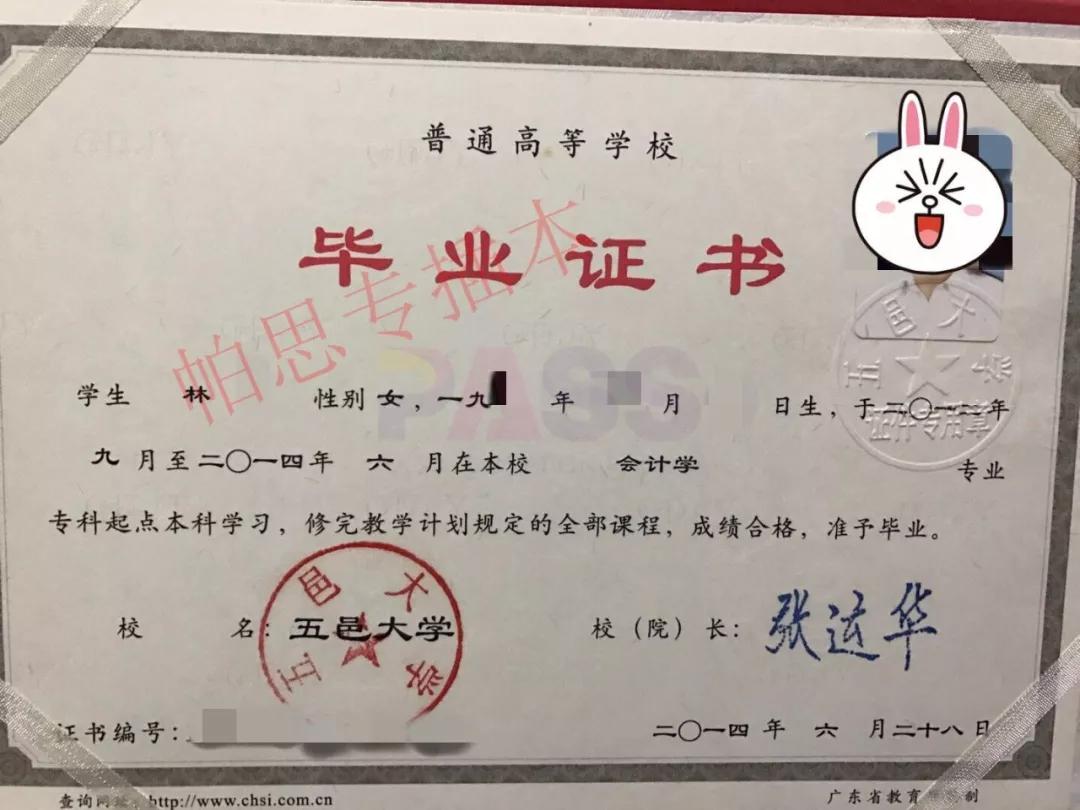 普通高等学校
毕业证书
帕思专插本
PASS
学生 林 性别 女，一九 年 月 日生，于二〇一二年
九月至二〇一四年 六 月在本校 会计学 专业
专科起点本科学习，修完教学计划规定的全部课程，成绩合格，准予毕业。
校 名：五邑大学 校（院）长：张运华
五邑大学
五邑大学
证件专用章
证书编号：
二〇一四年 六 月二十八日
查询网址：http://www.chsi.com.cn
广东省教育 制